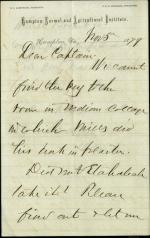 Hampton Normal and Agricultural Institute,
Hampton, Va., Nov 5 1879
Dear Captain
We cannot
find the key to the
room in Indian Cottage
in which Mills did
his work in plaster.
Did not Etahdleuh
take it? Please
find out & let me